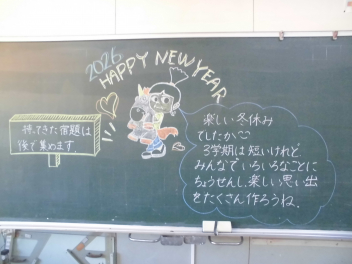 2026
HAPPY NEW YEAR
持ってきた宿題は
後で集めます。
楽しい冬休み
でしたか
3学期は短いけれど、
みんなでいろいろなことに
ちょうせんし、楽しい思い出
をたくさん作ろうね。